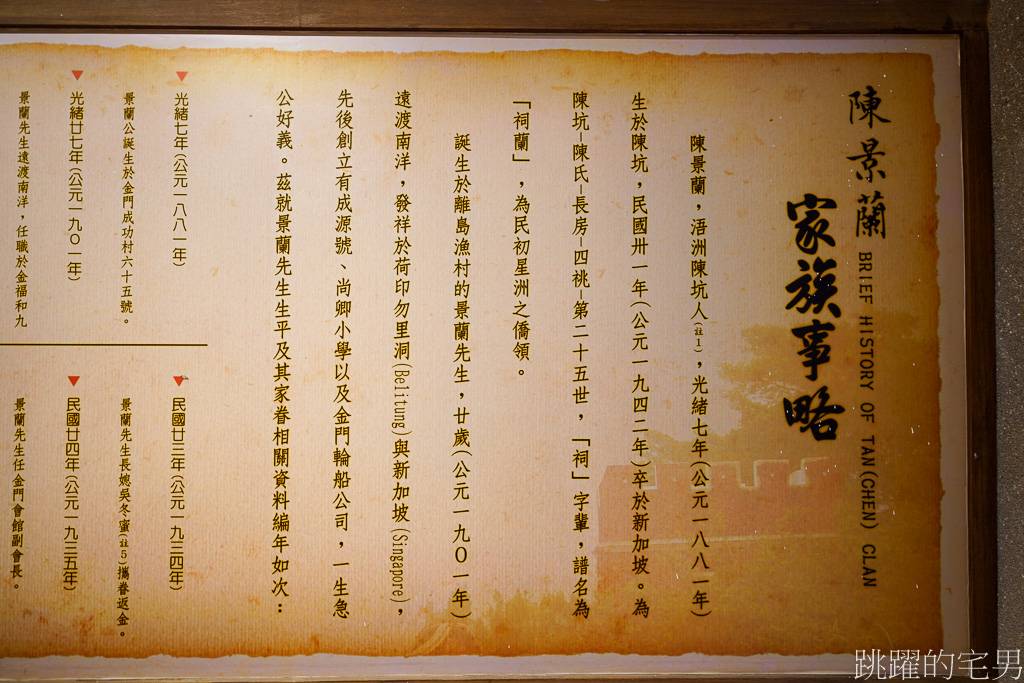 陳景蘭
BRIEF HISTORY OF TAN(CHEN) CLAN
家族事略
陳景蘭，浯洲陳坑人(註1)，光緒七年(公元一八八一年)
生於陳坑，民國卅一年(公元一九四二年)卒於新加坡。為
陳坑-陳氏-長房-四祧-第二十五世，「祠」字輩，譜名為
「祠蘭」，為民初星洲之僑領。
誕生於離島漁村的景蘭先生，廿歲(公元一九０一年)
遠渡南洋，發祥於荷印勿里洞(Belitung)與新加坡(Singapore)，
先後創立有成源號、尚卿小學以及金門輪船公司，一生急
公好義。茲就景蘭先生生平及其家眷相關資料編年如次：
光緒七年(公元一八八一年)
景蘭公誕生於金門成功村六十五號。
光緒廿七年(公元一九０一年)
景蘭先生遠渡南洋，任職於金福和九
民國廿三年(公元一九三四年)
景蘭先生長媳吳冬蜜(註5)攜眷返金。
民國廿四年(公元一九三五年)
景蘭先生任金門會館副會長。
跳躍的宅男